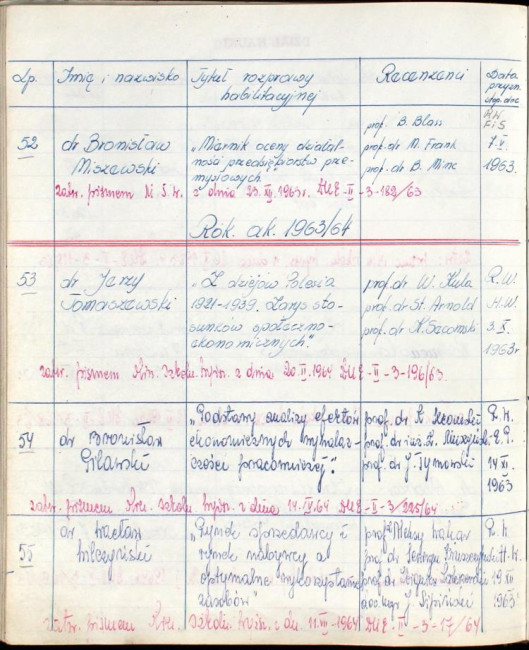 Lp. Imię i nazwisko Tytuł rozprawy habilitacyjnej Recenzenci Data przyzn. stop. doc.
52 dr Bronisław Miszewski
„Miernik oceny działal-
ności przedsiębiorstw prze-
mysłowych"
prof. B. Blass
prof. dr M. Frank
prof. dr B. Minc
7.V.
1963.
zatw. pismem M. S. W. z dnia 23.XII.1963r. DUE-II-3-189/63
Rok. ak. 1963/64
53 dr Jerzy Tomaszewski
„Z dziejów Polesia
1921-1939. Zarys sto-
sunków społeczno-
ekonomicznych"
prof. dr W. Kula
prof. dr St. Arnold
prof. dr K. Secomski
R.W.
H.W.
3.X.
1963r
zatw. pismem Min. Szkoln. Wyższ. z dnia 20.II.1964 DUE-II-3-196/63.
54 dr Bronisław
„Podstawy analizy efektów
ekonomicznych wynalaz-
czości pracowniczej".
prof. dr
prof. dr inż.
prof. dr J. Tymowski
14.XI.
1963
zatw. pismem Min. szkoln. wyższ. z dnia 14.IV.64 DUE-I-3/225/64
55 dr Wacław Wilczyński
„Rynek sprzedawcy i
rynek nabywcy a
optymalne wykorzystanie
zasobów"
prof. Aleksy Wakar
prof. dr
prof. dr Zbigniew
doc. J. Lipiński
19.XII
1963
zatw. pismem Min. Szkoln. wyższ. z dn. 11.VII-1964 DUE-II-3-17/64